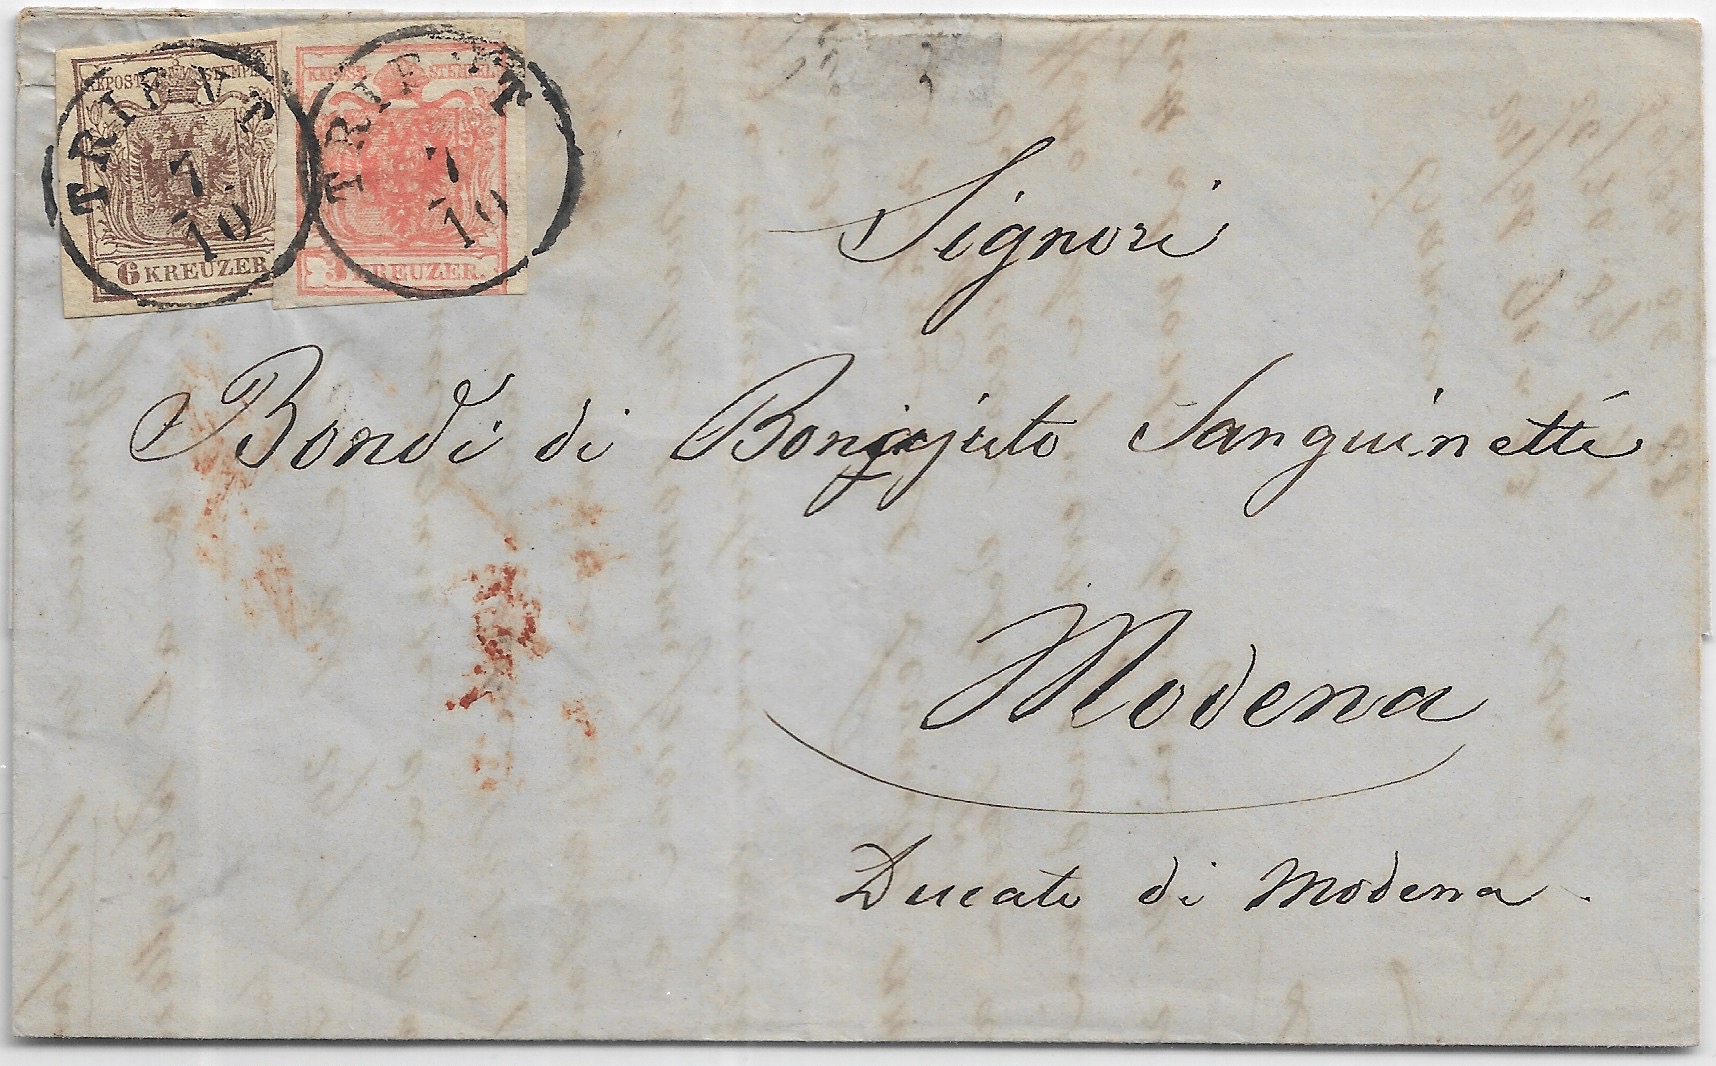 KKPOST-STEMPEL
6 KREUZER
KKPOST-STEMPEL
3 KREUZER.
TRIEST
7.
10
TRIEST
7
10
Signori
Bondi di Bonajuto Sanguinetti
Modena
Ducato di Modena.